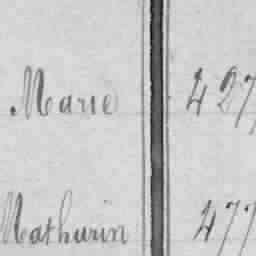 Marie 427
Mathurin 477